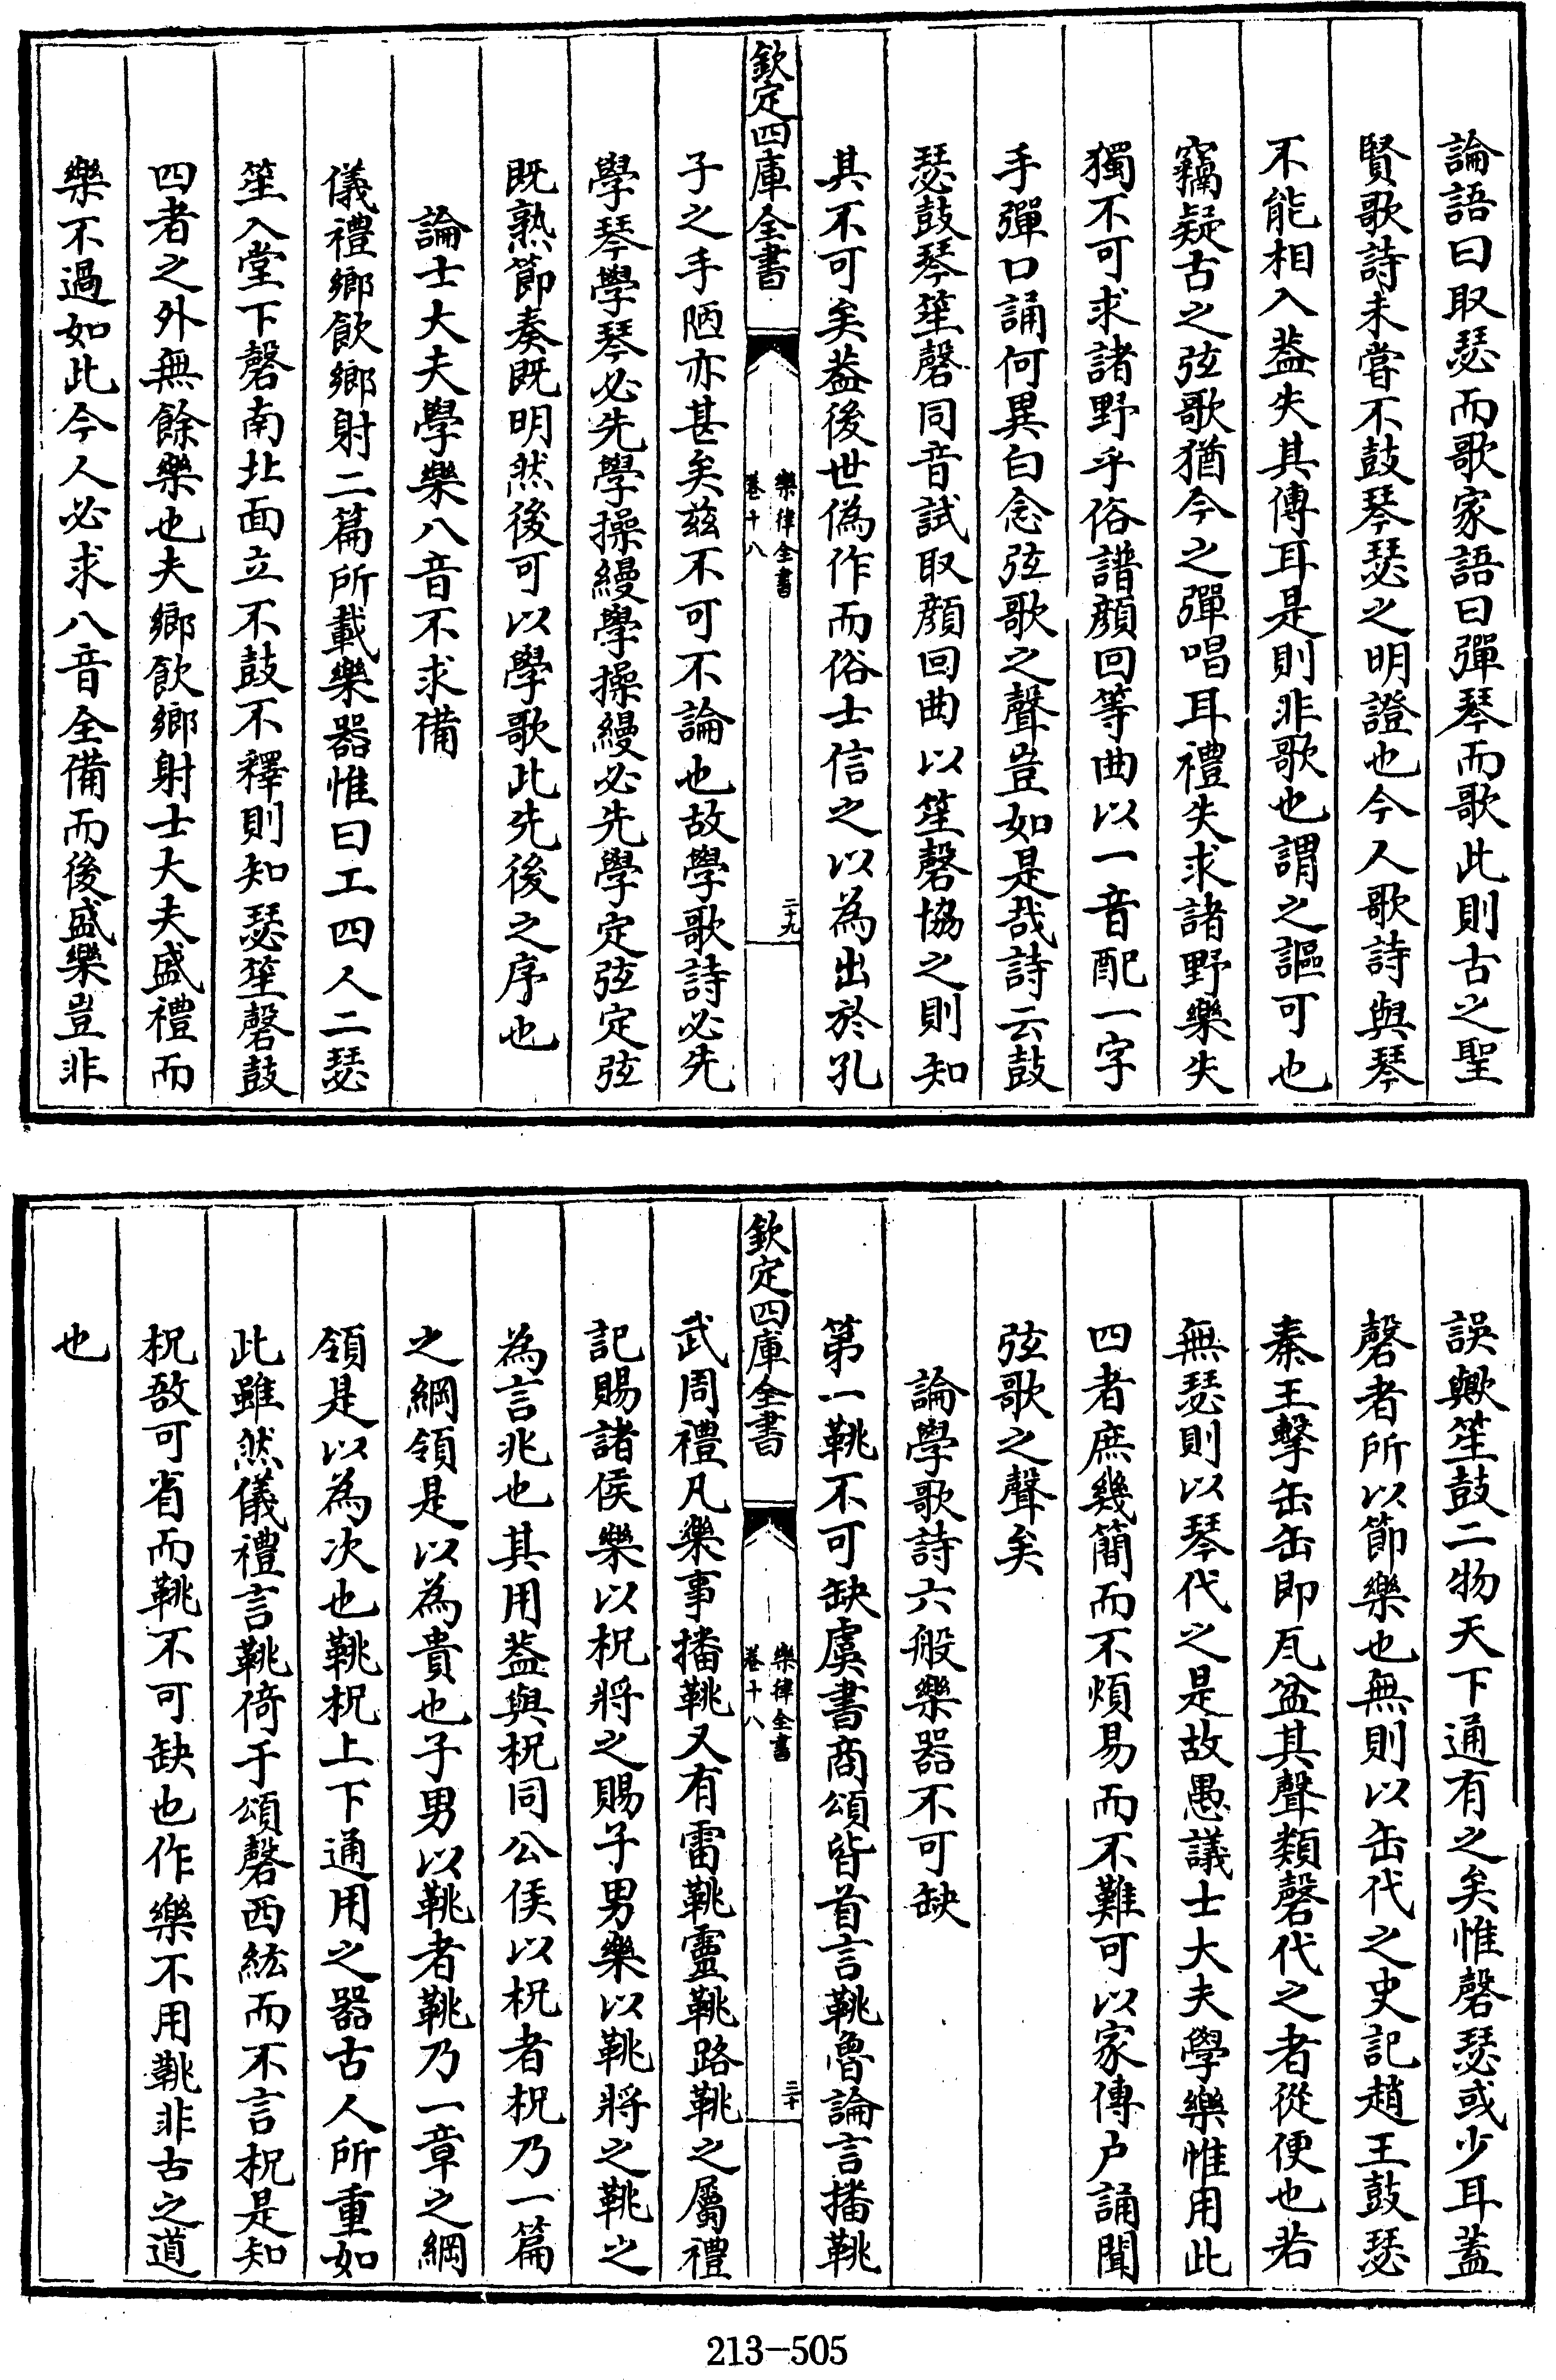 論語曰取瑟而歌家語曰彈琴而歌此則古之聖
賢歌詩未嘗不鼓琴瑟之明證也今人歌詩與琴
不能相入葢失其傳耳是則非歌也謂之謳可也
竊疑古之弦歌猶今之彈唱耳禮失求諸野樂失
獨不可求諸野乎俗譜顔回等曲以一音配一字
手彈口誦何異白念弦歌之聲豈如是哉詩云鼓
瑟鼓琴笙磬同音試取顔回曲以笙磬協之則知
其不可矣葢後世偽作而俗士信之以為出於孔
欽定四庫全書
樂律全書
卷十八
二十九
子之手陋亦甚矣兹不可不論也故學歌詩必先
學琴學琴必先學操縵學操縵必先學定弦定弦
既熟節奏既明然後可以學歌此先後之序也
論士大夫學樂八音不求備
儀禮鄉飲鄉射二篇所載樂器惟曰工四人二瑟
笙入堂下磬南北面立不鼓不釋則知瑟笙磬鼓
四者之外無餘樂也夫鄉飲鄉射士大夫盛禮而
樂不過如此今人必求八音全備而後盛樂豈非
誤歟笙鼓二物天下通有之矣惟磬瑟或少耳葢
磬者所以節樂也無則以缶代之史記趙王鼓瑟
秦王擊缶缶即瓦盆其聲類磬代之者從便也若
無瑟則以琴代之是故愚議士大夫學樂惟用此
四者庶幾簡而不煩易而不難可以家傳户誦聞
弦歌之聲矣
論學歌詩六般樂器不可缺
第一鞉不可缺虞書商頌皆首言鞉魯論言播鞉
欽定四庫全書
樂律全書
卷十八
三十
武周禮凡樂事播鞉又有雷鞉靈鞉路鞉之屬禮
記賜諸侯樂以柷將之賜子男樂以鞉將之鞉之
為言兆也其用葢與柷同公侯以柷者柷乃一篇
之綱領是以為貴也子男以鞉者鞉乃一章之綱
領是以為次也鞉柷上下通用之器古人所重如
此雖然儀禮言鞉倚于頌磬西紘而不言柷是知
柷敔可省而鞉不可缺也作樂不用鞉非古之道
也
213-505